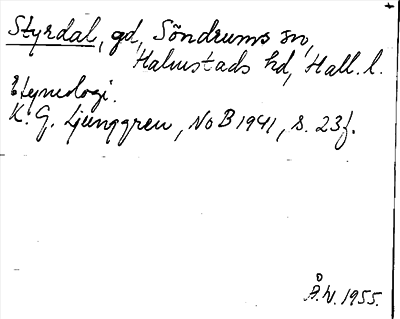 Styrdal, gd, Söndrums sn,
Halmstads hd, Hall. l.
Etymologi.
K. G. Ljunggren, NoB 1941, s. 23f.
Å.W. 1955.